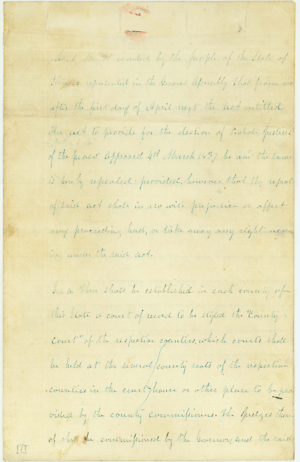 enacted by the people of the State of
represented in the General Assembly that from and
after the first day of April next the act entitled
An act to provide for the election of Probate Justices
of the peace approved 4th March 1837 be and the same
is hereby repealed: provided, however that the repeal
of said act shall in no wise prejudice or affect
any proceeding had, or take away any right accru
ing under the said act.
Sec 2 There shall be established in each county of
this State a court of record to be styled the "County
Court" of the respective counties, which courts shall
be held at the several county seats of the respective
counties in the courthouse or other place to be pro
vided by the county commissioners. The
of the commissioned by the Governor and the said